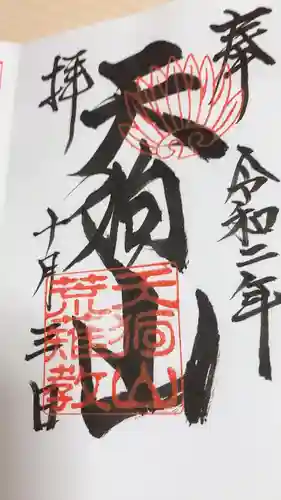 奉拝
令和二年
天狗山
十月三日
天狗山
荒薙教